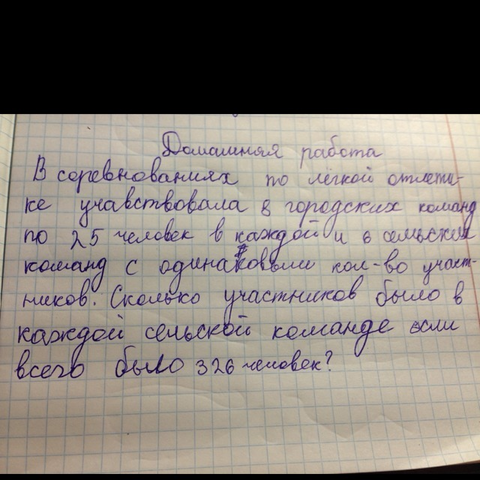 Домашняя работа
В соревнованиях по лёгкой отлети-
ке учавствовала 8 городских команд
по 25 человек в каждой и 6 сельских
команд с одинаковым кол-во участ-
ников. Сколько участников было в
каждой сельской команде если
всего было 326 человек?